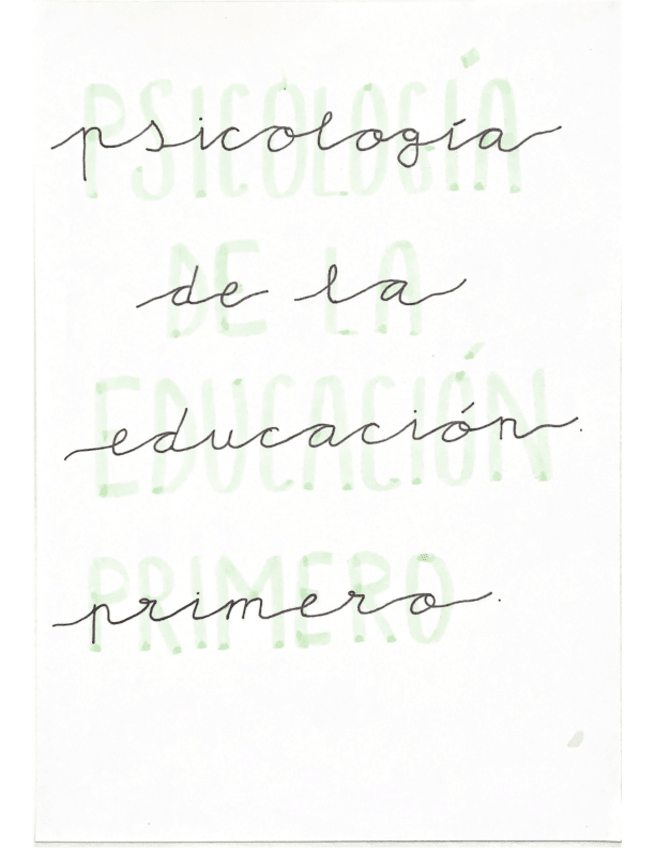 PSICOLOGÍA
psicología
DE LA
de la
EDUCACIÓN
educación.
PRIMERO
primero.